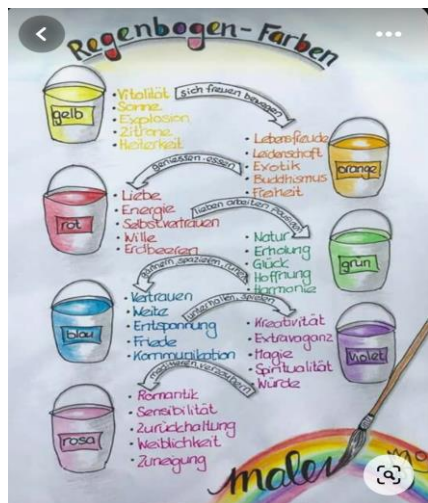 Regenbogen-Farben
gelb
• Vitalität
• Sonne
• Explosion
• Zitrone
• Heiterkeit
sich freuen bewegen
orange
• Lebensfreude
• Leidenschaft
• Exotik
• Buddhismus
• Freiheit
geniessen essen
rot
• Liebe
• Energie
• Selbstvertrauen
• Wille
• Erdbeeren
lieben arbeiten
grün
Natur •
Erholung •
Glück •
Hoffnung •
Harmonie •
spazieren
blau
• Vertrauen
• Weite
• Entspannung
• Friede
• Kommunikation
unterhalten, spielen
violet
• Kreativität
• Extravaganz
• Magie
• Spiritualität
• Würde
meditieren verzaubern
rosa
• Romantik
• Sensibilität
• Zurückhaltung
• Weiblichkeit
• Zuneigung
malen